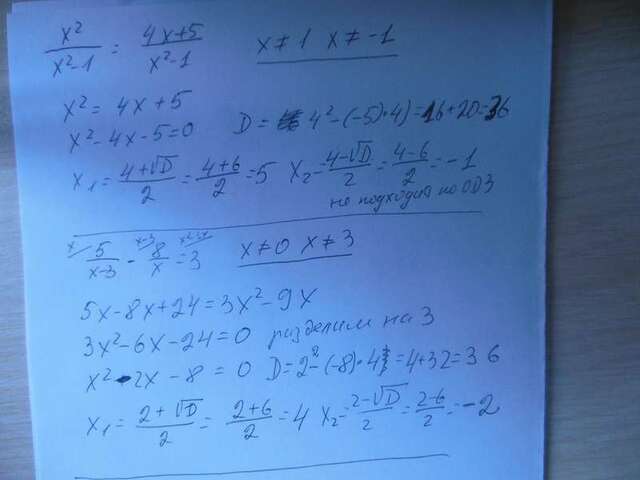 x²/(x²-1) = (4x+5)/(x²-1) x≠1 x≠-1
x² = 4x+5
x²-4x-5=0 D = 4²-(-5)·4)=16+20=36
x₁=(4+√D)/2=(4+6)/2=5 x₂=(4-√D)/2=(4-6)/2=-1
не подходит по ОДЗ
x/ 5/(x-3) - x-3/ 8/x = 3 x≠0 x≠3
5x-8x+24=3x²-9x
3x²-6x-24=0 разделим на 3
x²-2x-8=0 D=2²-(-8)·4=4+32=36
x₁=(2+√D)/2=(2+6)/2=4 x₂=(2-√D)/2=(2-6)/2=-2